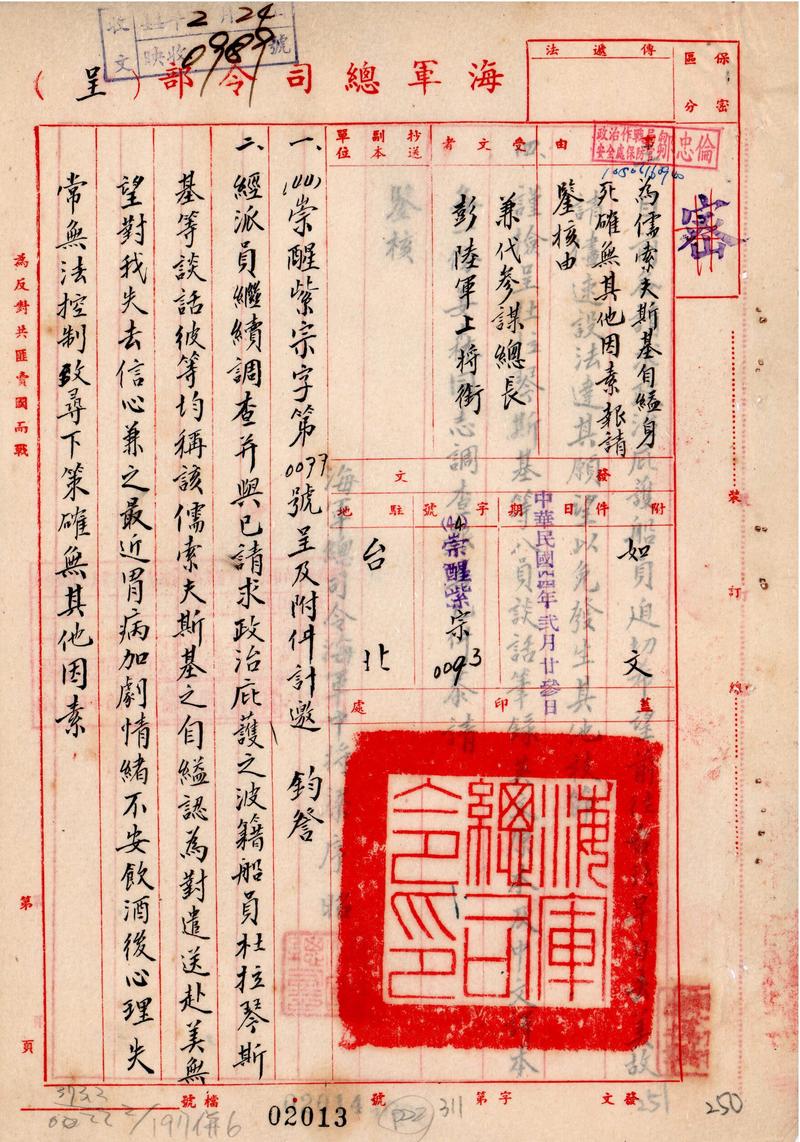 收文
2月24
0989號
海軍總司令部（呈）
傳遞法
保密區分
密
忠倫
政治作戰局
為儒索夫斯基自縊身
死確無其他因素報請
鑒核由
受文者
兼代參謀總長
彭陸軍上將銜
抄送副本單位
附件
如文
發文
日期
中華民國四四年貳月廿參日
字號
(44)崇醒紫宗0093
駐地
台北
蓋印處
海軍總司令印
一、(44)崇醒紫宗字第0077號呈及附件計邀 鈞詧
二、經派員繼續調查并與已請求政治庇護之波籍船員杜拉琴斯
基等談話彼等均稱該儒索夫斯基之自縊認為對遣送赴美無
望對我失去信心兼之最近胃病加劇情緒不安飲酒後心理失
常無法控制致尋下策確無其他因素
為反對共匪賣國而戰
第 頁
裝訂線
檔號
02013
發文 字第 號
311
250